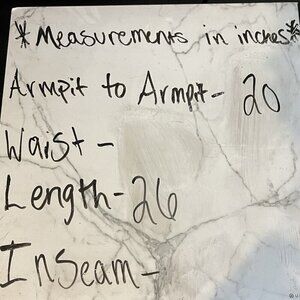 *Measurements in inches*
Armpit to Armpit- 20
Waist -
Length- 26
Inseam -